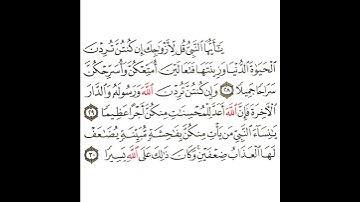 يَٰٓأَيُّهَا ٱلنَّبِىُّ قُل لِّأَزْوَٰجِكَ إِن كُنتُنَّ تُرِدْنَ
ٱلْحَيَوٰةَ ٱلدُّنْيَا وَزِينَتَهَا فَتَعَالَيْنَ أُمَتِّعْكُنَّ وَأُسَرِّحْكُنَّ
سَرَاحًا جَمِيلًا ٢٨ وَإِن كُنتُنَّ تُرِدْنَ ٱللَّهَ وَرَسُولَهُۥ وَٱلدَّارَ
ٱلْءَاخِرَةَ فَإِنَّ ٱللَّهَ أَعَدَّ لِلْمُحْسِنَٰتِ مِنكُنَّ أَجْرًا عَظِيمًا ٢٩
يَٰنِسَآءَ ٱلنَّبِىِّ مَن يَأْتِ مِنكُنَّ بِفَٰحِشَةٍ مُّبَيِّنَةٍ يُضَٰعَفْ
لَهَا ٱلْعَذَابُ ضِعْفَيْنِ وَكَانَ ذَٰلِكَ عَلَى ٱللَّهِ يَسِيرًا ٣٠